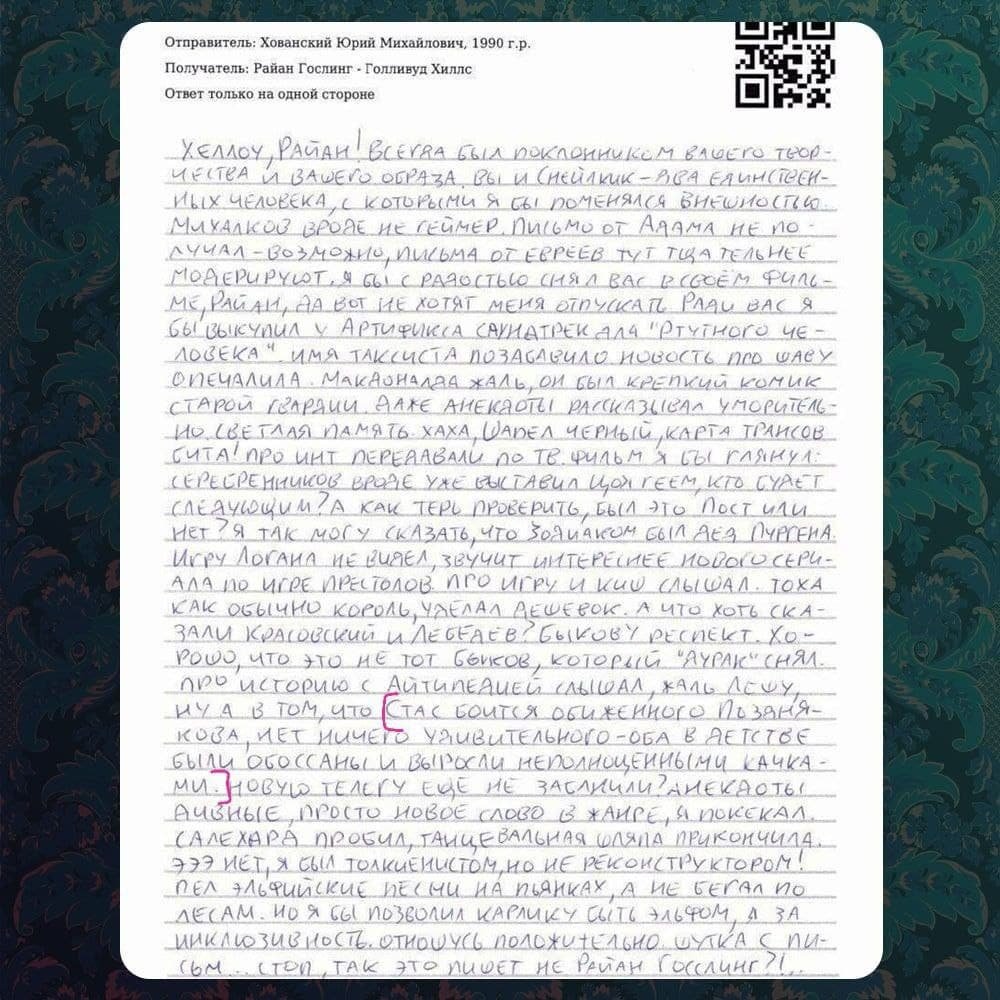 Отправитель: Хованский Юрий Михайлович, 1990 г.р.
Получатель: Райан Гослинг - Голливуд Хиллс
Ответ только на одной стороне
ХЕЛЛОУ, РАЙАН! ВСЕГДА БЫЛ ПОКЛОННИКОМ ВАШЕГО ТВОР-
ЧЕСТВА И ВАШЕГО ОБРАЗА. ВЫ И СНЕЙЛКИК – ДВА ЕДИНСТВЕН-
НЫХ ЧЕЛОВЕКА, С КОТОРЫМИ Я БЫ ПОМЕНЯЛСЯ ВНЕШНОСТЬЮ.
МИХАЛКОВ ВРОДЕ НЕ ГЕЙМЕР. ПИСЬМО ОТ АДАМА НЕ ПО-
ЛУЧАЛ – ВОЗМОЖНО, ПИСЬМА ОТ ЕВРЕЕВ ТУТ ТЩАТЕЛЬНЕЕ
МОДЕРИРУЮТ. Я БЫ С РАДОСТЬЮ СНЯЛ ВАС В СВОЁМ ФИЛЬ-
МЕ, РАЙАН, ДА ВОТ НЕ ХОТЯТ МЕНЯ ОТПУСКАТЬ. РАДИ ВАС Я
БЫ ВЫКУПИЛ У АРТИФИКСА САУНДТРЕК ДЛЯ "РТУТНОГО ЧЕ-
ЛОВЕКА". ИМЯ ТАКСИСТА ПОЗАБАВИЛО, НОВОСТЬ ПРО ШАВУ
ОПЕЧАЛИЛА. МАКДОНАЛДА ЖАЛЬ, ОН БЫЛ КРЕПКИЙ КОМИК
СТАРОЙ ГВАРДИИ. ДАЖЕ АНЕКДОТЫ РАССКАЗЫВАЛ УМОРИТЕЛЬ-
НО. СВЕТЛАЯ ПАМЯТЬ. ХАХА, ШАПЕЛ ЧЕРНЫЙ, КАРТА ТРАНСОВ
БИТА! ПРО ИНТ ПЕРЕДАВАЛИ ПО ТВ. ФИЛЬМ Я БЫ ГЛЯНУЛ:
СЕРЕБРЕННИКОВ ВРОДЕ УЖЕ ВЫСТАВИЛ ЦОЯ ГЕЕМ, КТО БУДЕТ
СЛЕДУЮЩИМ? А КАК ТЕРЬ ПРОВЕРИТЬ, БЫЛ ЭТО ПОСТ ИЛИ
НЕТ? Я ТАК МОГУ СКАЗАТЬ, ЧТО ЗОДИАКОМ БЫЛ ДЕД ПУРГЕНА.
ИГРУ ЛОГАНА НЕ ВИДЕЛ, ЗВУЧИТ ИНТЕРЕСНЕЕ НОВОГО СЕРИ-
АЛА ПО ИГРЕ ПРЕСТОЛОВ. ПРО ИГРУ И КИШ СЛЫШАЛ. ТОХА
КАК ОБЫЧНО КОРОЛЬ, УДЕЛАЛ ДЕШЕВОК. А ЧТО ХОТЬ СКА-
ЗАЛИ КРАСОВСКИЙ И ЛЕБЕДЕВ? БЫКОВУ РЕСПЕКТ. ХО-
РОШО, ЧТО ЭТО НЕ ТОТ БЫКОВ, КОТОРЫЙ "ДУРАК" СНЯЛ.
ПРО ИСТОРИЮ С АЙТИПЕДИЕЙ СЛЫШАЛ, ЖАЛЬ ЛЁШУ,
НУ А В ТОМ, ЧТО [СТАС БОИТСЯ ОБИЖЕННОГО ПОЗДНЯ-
КОВА, НЕТ НИЧЕГО УДИВИТЕЛЬНОГО – ОБА В ДЕТСТВЕ
БЫЛИ ОБОССАНЫ И ВЫРОСЛИ НЕПОЛНОЦЕННЫМИ КАЧКА-
МИ.] НОВУЮ ТЕЛЕГУ ЕЩЁ НЕ ЗАБЛИЛИ? АНЕКДОТЫ
ДИВНЫЕ, ПРОСТО НОВОЕ СЛОВО В ЖАНРЕ, Я ПОКЕКАЛ.
САЛЕХАРД ПРОБИЛ, ТАНЦЕВАЛЬНАЯ ШЛЯПА ПРИКОНЧИЛА.
ЭЭЭ НЕТ, Я БЫЛ ТОЛКИЕНИСТОМ, НО НЕ РЕКОНСТРУКТОРОМ!
ПЕЛ ЭЛЬФИЙСКИЕ ПЕСНИ НА ПЬЯНКАХ, А НЕ БЕГАЛ ПО
ЛЕСАМ. НО Я БЫ ПОЗВОЛИЛ КАРЛИКУ БЫТЬ ЭЛЬФОМ, Я ЗА
ИНКЛЮЗИВНОСТЬ. ОТНОШУСЬ ПОЛОЖИТЕЛЬНО. ШУТКА С ПИ-
СЬМ... СТОП, ТАК ЭТО ПИШЕТ НЕ РАЙАН ГОССЛИНГ?!..